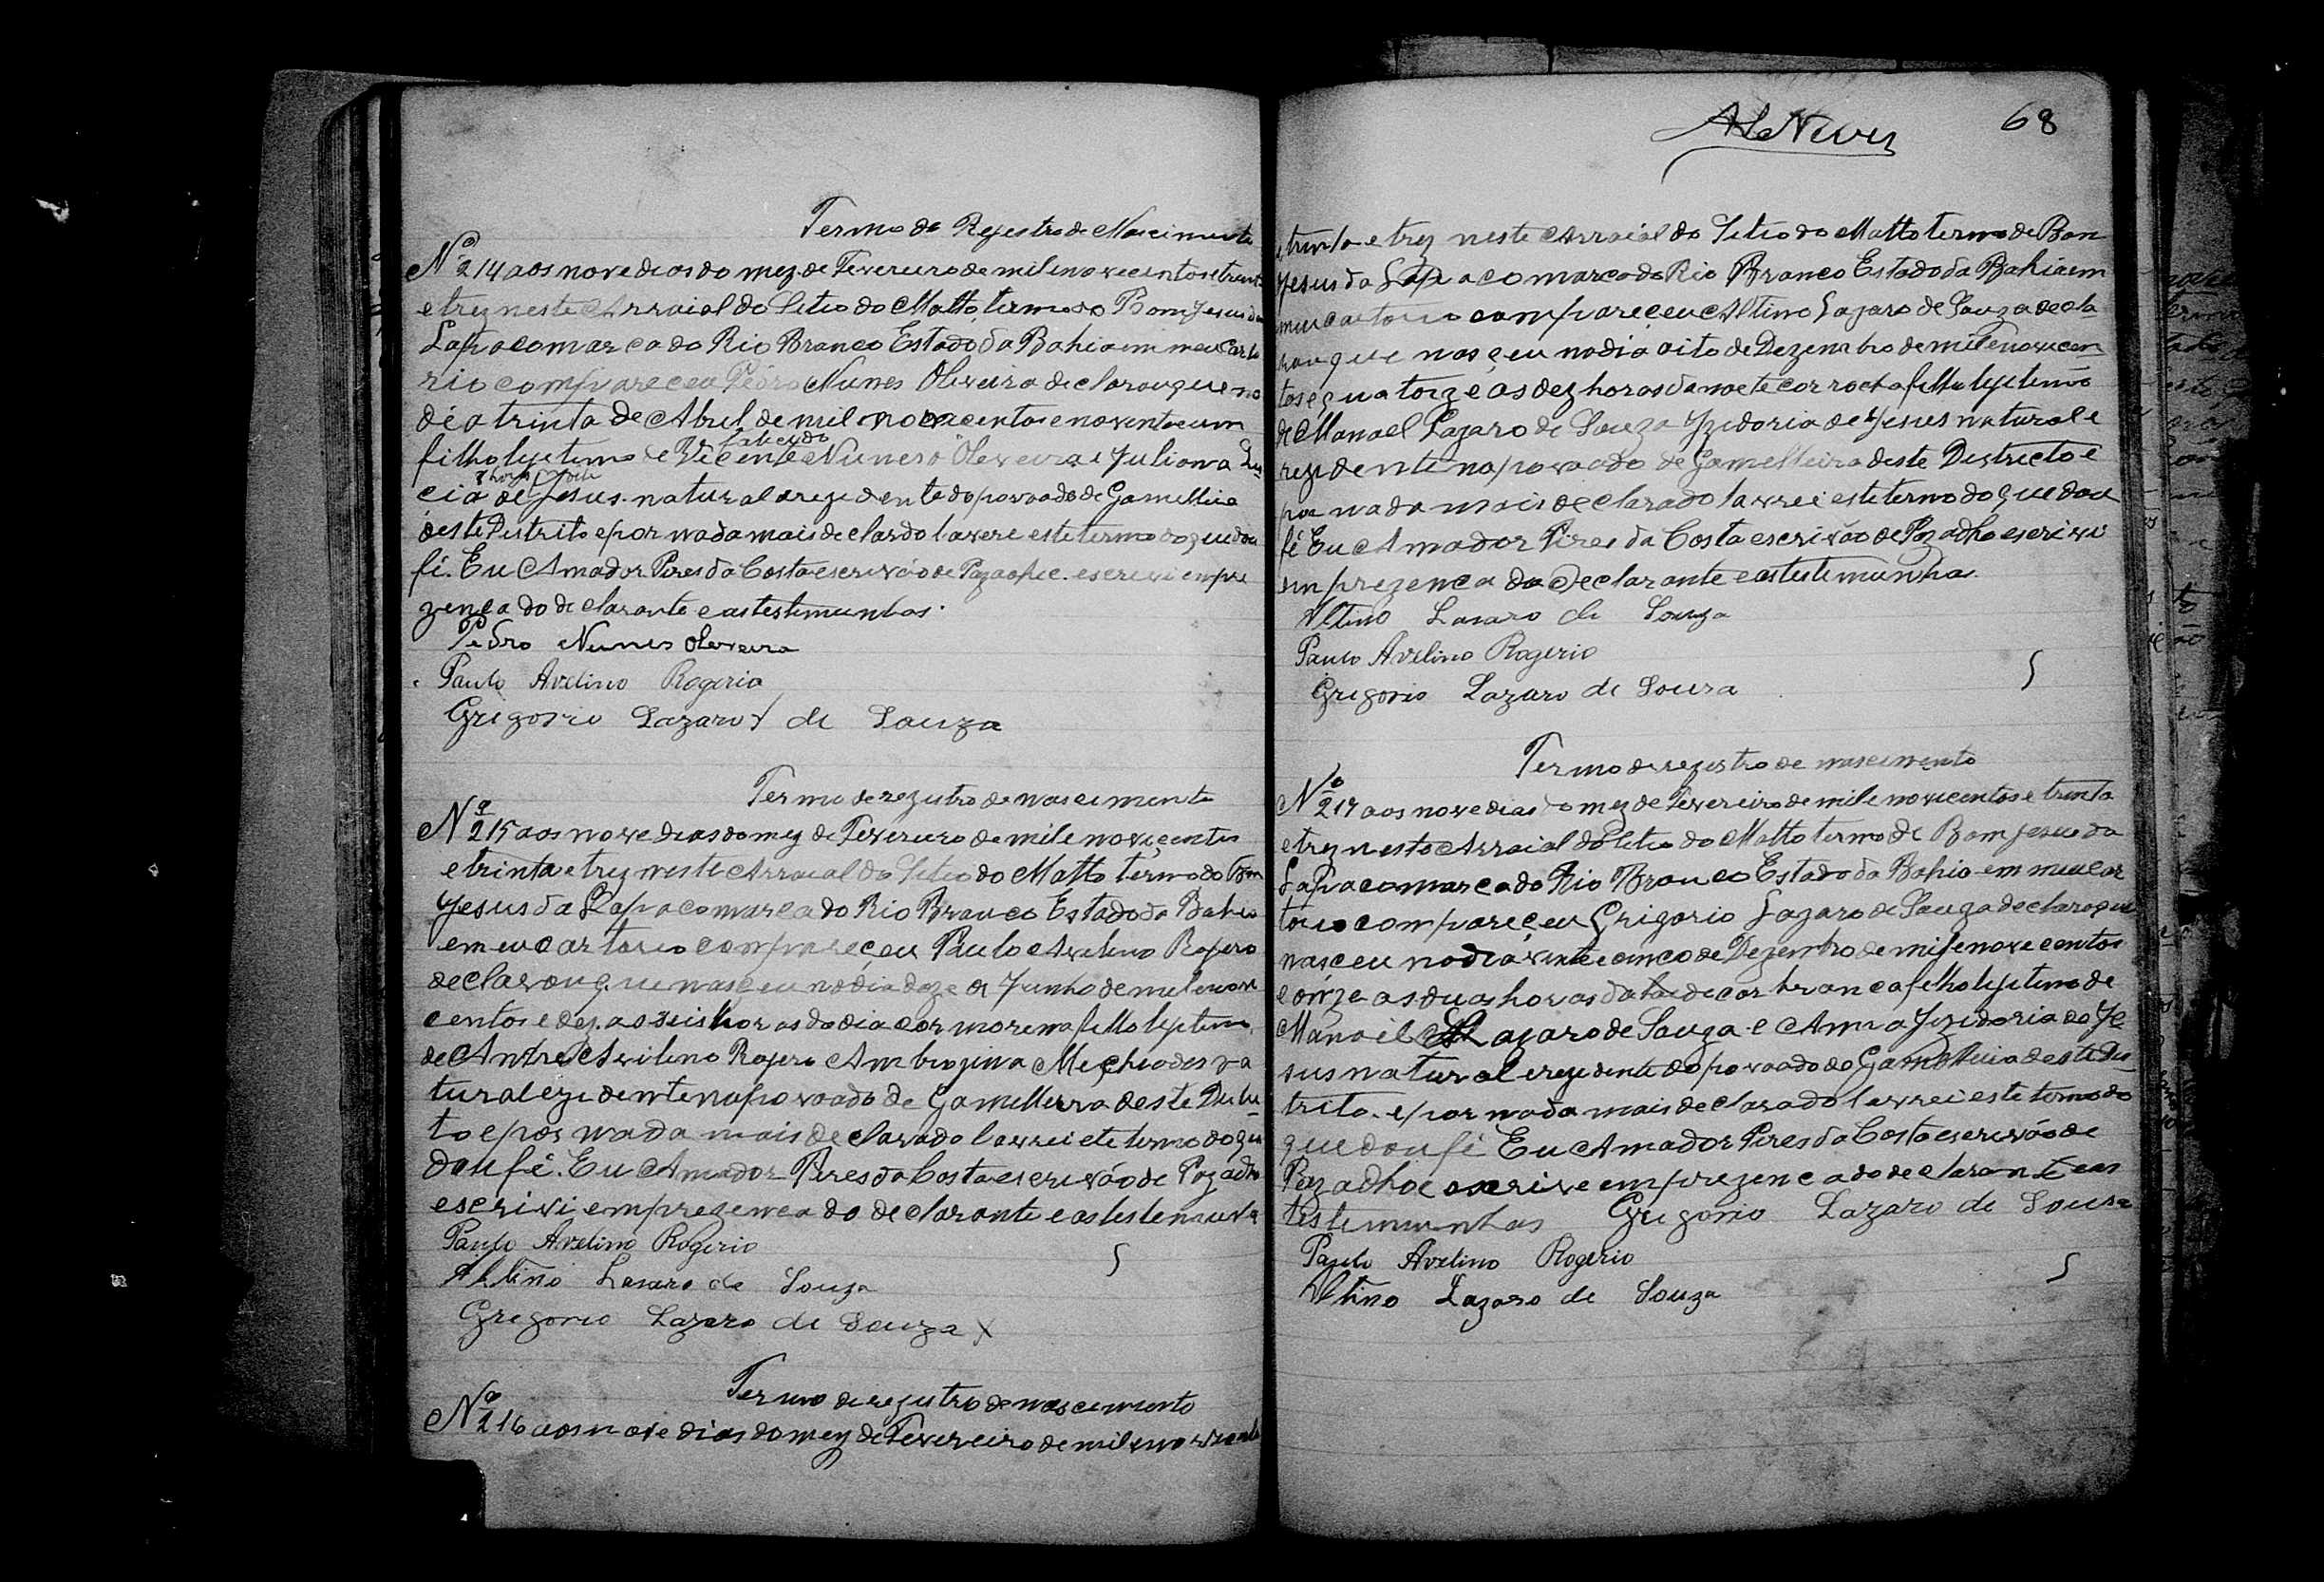 Termo de Regestro de Nascimento
Nº 214 aos nove dias do mez de Fevereiro de mil e novecentos e trinta
e trez neste Arraial do Sitio do Matto, termo do Bom Jesus da
Lapa comarca do Rio Branco Estado da Bahia em meu carto
rio compareceu Pedro Nunes Oliveira declarou que no
dia trinta de Abril de mil novecentos e noventa e um
filho lejetimo de Vicente Nunes Oliveira e Juliana Lu
cia de Jesus natural e rezidente do povoado de Gamelleira
deste Distrito e por nada mais declardo lavrei este termo do que dou
fé. Eu Amador Pires da Costa escrivão de Paz escrevi em pre
zença do declarante e as testemunhas.
Pedro Nunes Oliveira
Paulo Avelino Rogerio
Gregorio Lazaro de Souza
Termo de rezistro de nascimento
Nº 215 aos nove dias do mez de Fevereiro de mil e noveçentos
e trinta e trez neste Arraial do Sitio do Matto termo do Bom
Jesus da Lapa comarca do Rio Branco Estado da Bahia
em eu cartorio compareçeu Paulo Avelino Rogero
declarou que nasçeu no dia doze de Junho de mil e nove
centos e dez as seis horas do dia cor morena filho lejetimo
de Andre Avilino Rogero Ambrozina Meçhiades na
tural e rezidente na povoado de Gamelleira deste Distri-
to e por nada mais declarado lavrei ete termo do que
dou fé. Eu Amador Pires da Costa escrivão de Paz adho
escrivi em prezença do declarante e as testemunha
Paulo Avelino Rogerio
Altino Lazaro de Souza
Gregorio Lazaro de Souza X
Termo de rezistro de nascimento
Nº 216 aos nove dias do mez de Fevereiro de mil e novecento
AL Neves
68
e trinta e trez neste Arraial do Sitio do Matto termo de Bom
Jesus da Lapa comarca do Rio Branco Estado da Bahia em
meu cartorio compareçeu Altino Lazaro de Souza decla-
rou que nasçeu no dia oito de Dezembro de mil e novecen
tos e quatorze as dez horas da noete cor rocha filho lejetimo
de Manoel Lazaro de Souza Izidoria de Jesus natural e
rezidente na povoado de Gamelleira deste Destrecto e
por nada mais declarado lavrei este termo do que dou
fé Eu Amador Pires da Costa escrivão de Paz adho escrivi
em prezença do declarante e as testemunhas.
Altino Lazaro de Souza
Paulo Avelino Rogerio
Gregorio Lazaro de Souza
Termo de rezestro de nascimento
Nº 217 aos nove dias do mez de Fevereiro de mil e novecentos e trinta
e trez nesto Arraial do Sitio do Matto termo de Bom Jesus da
Lapa comarca do Rio Branco Estado da Bahia em meu car
torio compareçeu Grigorio Lazaro de Souza declaro que
nasçeu no dia vinte e cinco de Dezembro de mil e nove centos
e onze as duas horas da tarde cor branca filho lejetimo de
Manoel Lazaro de Souza e Anna Izidoria de Je
sus natural e rezidente do povoado do Gamelleira deste Dis-
trito. e por nada mais declarado lavrei este termo do
que dou fé Eu Amador Pires da Costa escrivão de
Paz adhoc escrive em prezença do declarante e as
testemunhas Gregorio Lazaro de Souza
Paulo Avelino Rogerio
Altino Lazaro de Souza